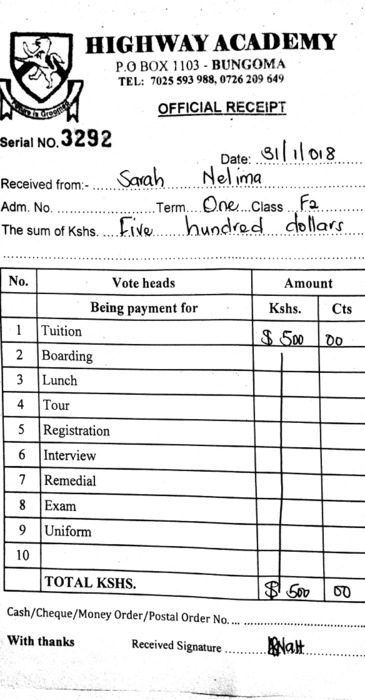 HIGHWAY ACADEMY
P.O BOX 1103 - BUNGOMA
TEL: 7025 593 988, 0726 209 649
OFFICIAL RECEIPT
Serial NO. 3292
Date: 31/1/018
Received from:- Sarah Nelima
Adm. No. .................... Term One Class F2
The sum of Kshs. Five hundred dollars
No. Vote heads Amount
Being payment for Kshs. Cts
1 Tuition $ 500 00
2 Boarding
3 Lunch
4 Tour
5 Registration
6 Interview
7 Remedial
8 Exam
9 Uniform
10
TOTAL KSHS. $ 500 00
Cash/Cheque/Money Order/Postal Order No. ...
With thanks Received Signature